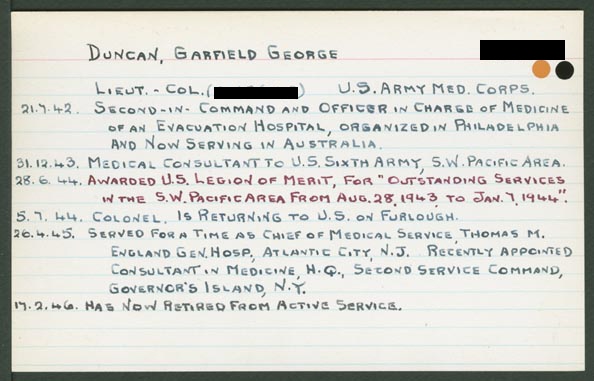 DUNCAN, GARFIELD GEORGE
LIEUT.-COL.( ) U.S. ARMY MED. CORPS.
21.7.42. SECOND-IN-COMMAND AND OFFICER IN CHARGE OF MEDICINE
OF AN EVACUATION HOSPITAL, ORGANIZED IN PHILADELPHIA
AND NOW SERVING IN AUSTRALIA.
31.12.43. MEDICAL CONSULTANT TO U.S. SIXTH ARMY, S.W. PACIFIC AREA.
28.6.44. AWARDED U.S. LEGION OF MERIT, FOR "OUTSTANDING SERVICES
IN THE S.W. PACIFIC AREA FROM AUG. 28, 1943, TO JAN. 7, 1944".
5.7.44. COLONEL. IS RETURNING TO U.S. ON FURLOUGH.
26.4.45. SERVED FOR A TIME AS CHIEF OF MEDICAL SERVICE, THOMAS M.
ENGLAND GEN. HOSP., ATLANTIC CITY, N.J. RECENTLY APPOINTED
CONSULTANT IN MEDICINE, H.Q., SECOND SERVICE COMMAND,
GOVERNOR'S ISLAND, N.Y.
17.2.46. HAS NOW RETIRED FROM ACTIVE SERVICE.